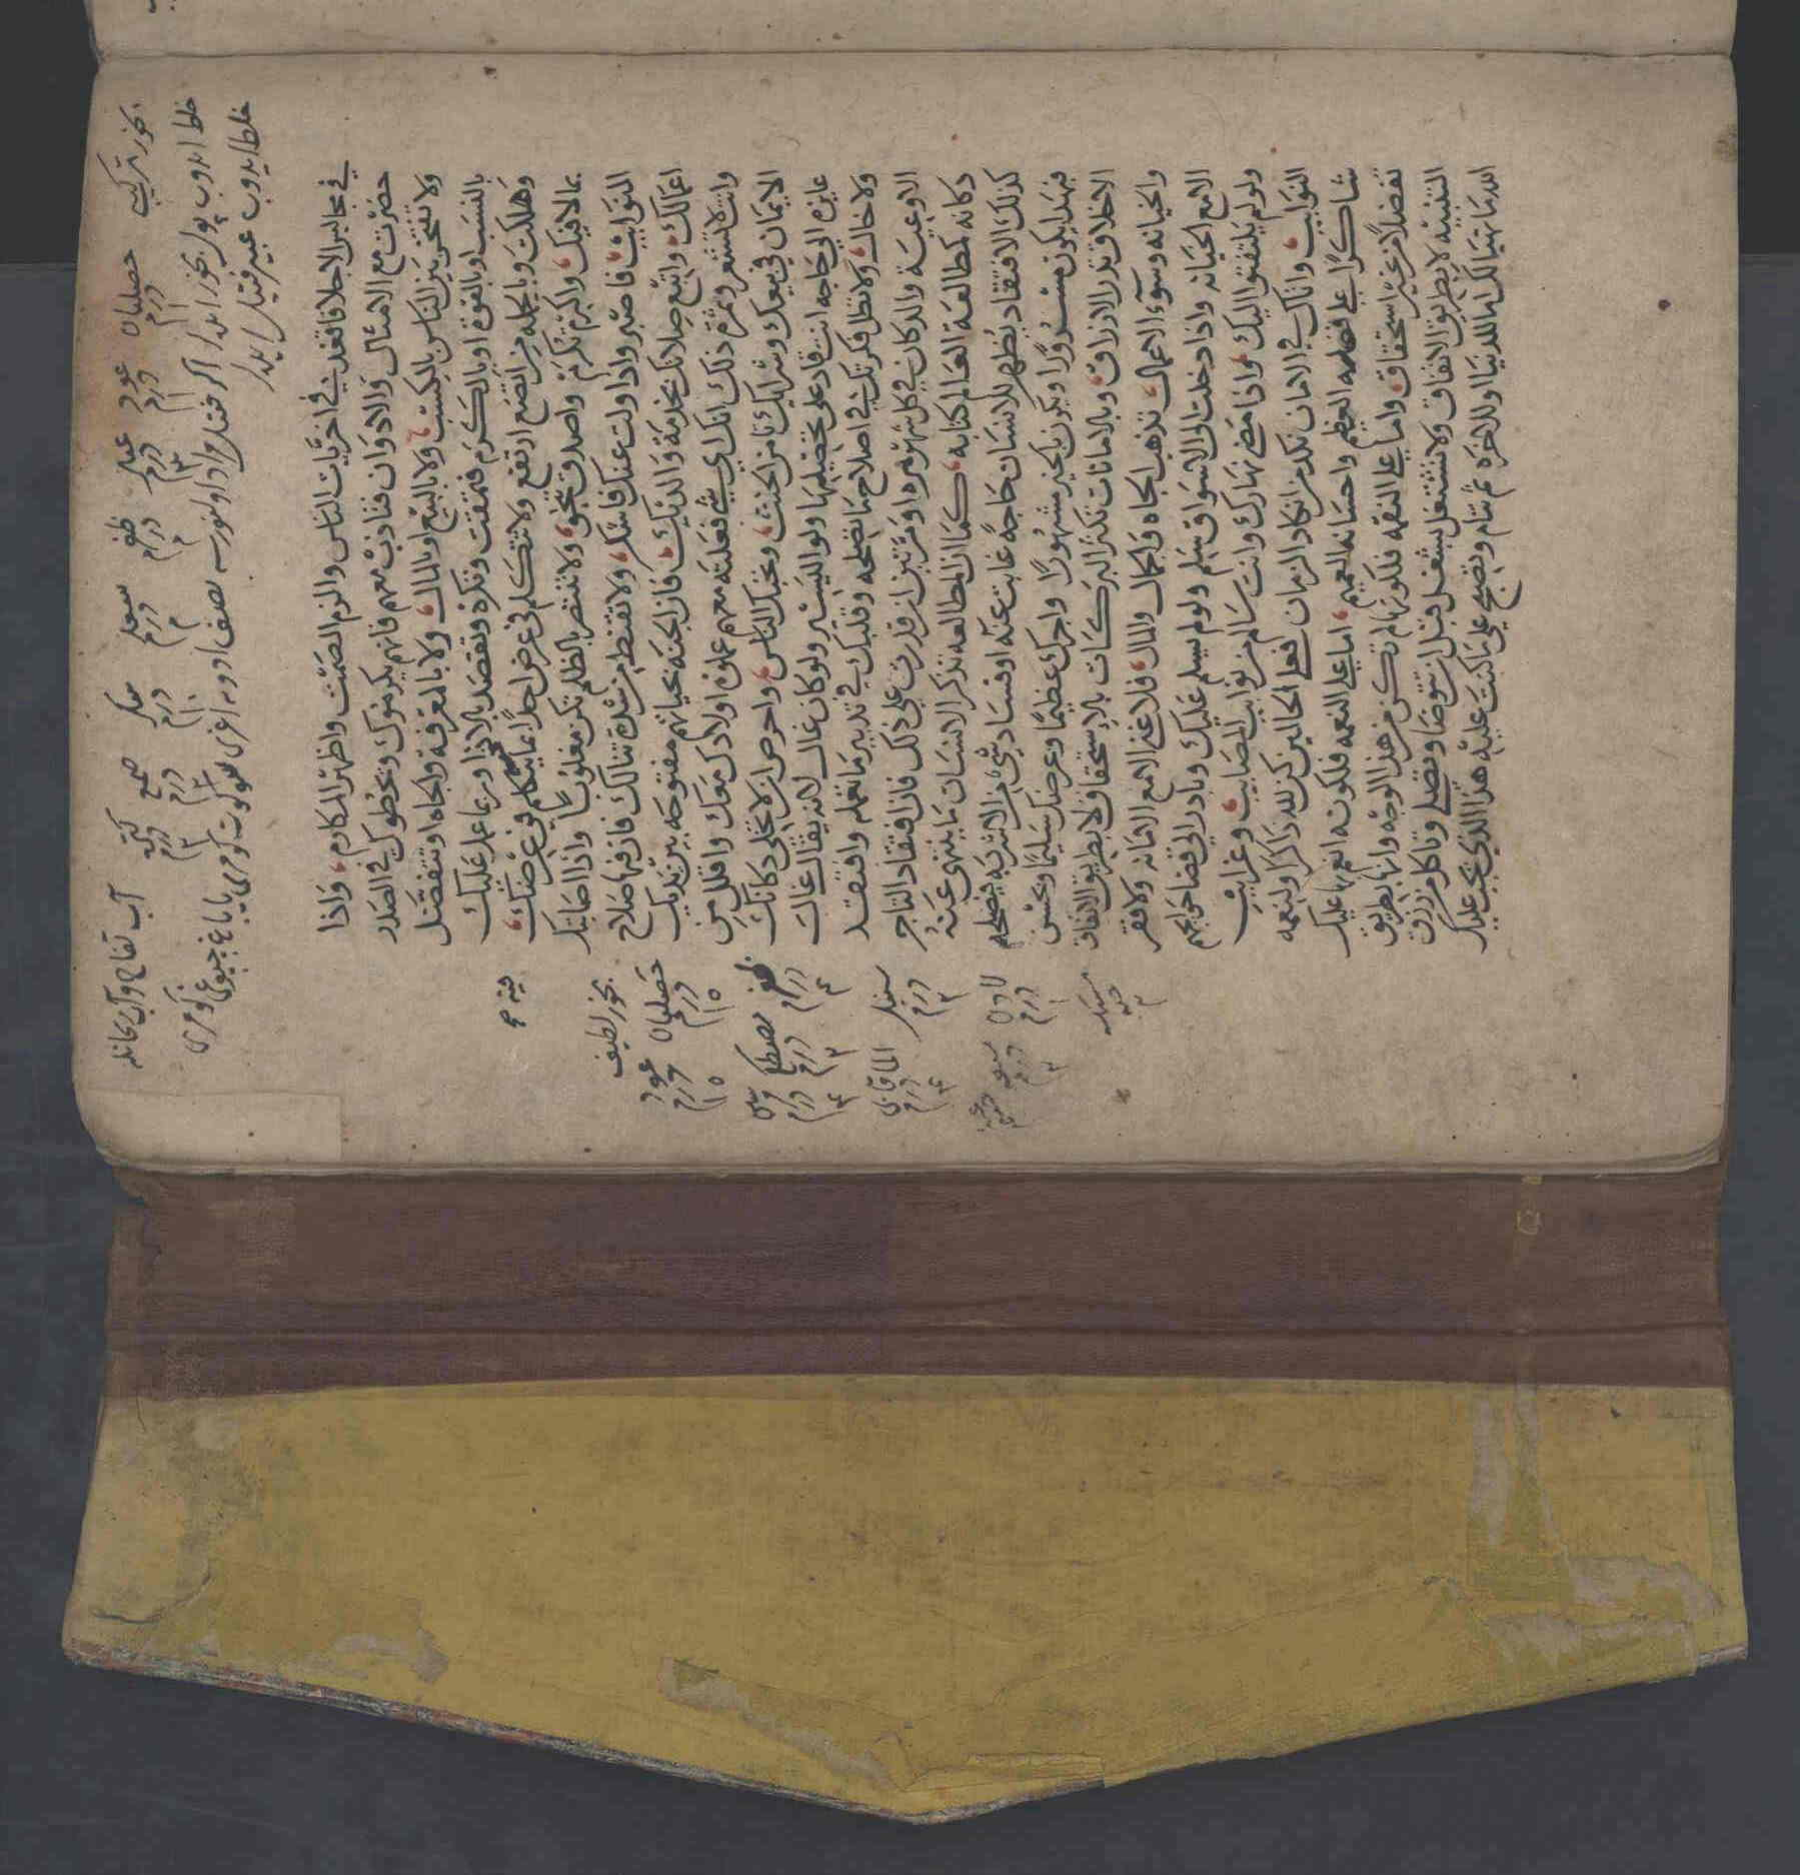 بخور تركيبى
حصلبان درم عود درم عنبر درم ظفر درم سنبل درم سكر درم صمغ درم كثيره درم آب تفاح و آب ريحانله
خلط ايدوب
خلط ايدوب عنبر فتيل ايدلر
في مجالس الاجلا فاقعد في اخريات الناس والزم الصمت واظهر المكارم، واذا
حضرت مع الامثال والاخوان فتاذب معهم فانهم يكرموك ويحطوك في الصدر
ولا تفتخر بين الناس بالكسب، ولا بالبيع او بالمال، ولا بالمعرفة والجاه او تتفضل
بالنسب او بالقوة او بالكرم فتمقت وتكره وتقصد بالاذا وربما عمل عليك
وهلكت وبالجمله من اتضع ارتفع ولا تتكلم في عرض احد انما يتكلم في عرضك،
بما لا فيك، واكرم تكرم واصدق تنجو، ولا تنتصر بالظلم تكن مغلوبا واذا اصابتك
النوايب، فاصبر واذا ولت عنك فاشكر، ولا تقنط من شدة تنالك فان فيها صلاح
اعمالك، واتبع صلاتك بخدمة والديك، فان الجنه بحياتهم مفتوحه بين يديك
وانت لا تشعر وثمرة ذلك انك اي شي فعلته معهم عملوه اولادك معك واقلل من
الايمان في بيعك وشرايك تامن الحنث، وتحبك الناس، واحرص ان لا تخلي دكانك
عايزه الي حاجه انت قادر على تحصيلها ولو اليسير ولو كان غال لانه يقال غال
ولا خال، ولا تطل فكرتك في اصلاح ما تصلحه وقلبك في تدبير ما تعمله وافتقد
الاوعية والدكان في كل شهر مره او مرتين ان قدرت على ذلك فان افتقاد التاجر
دكانه كمطالعة العالم كتابه، كما ان المطالعه تذكر الانسان ما ينتهى عنه
كذلك الافتقاد يظهر للانسان حاجة غابت عنه او فساد شي من الاشربه فيصلحه
فبهذا يكون مسرورا ويكون بالخير مشهورا واجرك عظيما وعرضك سليما وتحسن
الاخلاق تدر الارزاق، وبالامانات تكثر البركات بالاستحقاق لا بطريق الاتفاق
والخيانه وسوء الاعمال، تذهب الجاه والجمال والمال، فلا غنى الا مع الامانه ولا فقر
الا مع الخيانه واذا دخلت الى الاسواق سلم ولو لم يسلم عليك وبادر الى قضا حوايجهم
ولو لم يلتفتوا اليك، واذا مضى نهارك وانت سالم من نوايب المصايب، وغرايب
النوايب، واناك في الامان نكد من انكاد الزمان فعلى الحالين كن لله ذاكرا ولنعمه
شاكرا على فضله العظيم واحسانه العميم، اما على النعمه فلكونه انعم بها عليك
تفضلا من غير استحقاق، واما على النقمه فلكونها لم تكن من هذا الوجه وانها بطريق
التنبيه لا بطريق الاتفاق ولا تشتغل بشغل قبل ان تتوضا وتصلى وتاكل من رزق
الله ما تهيا لك اما للدنيا او للاخره ثم تنام وتصبح على ما كنت عليه هذا الذي يجب عليك
بخور لطيف
حصلبان درم ١٥ عود درم ١٥
ظفر درم ٤ مصطكى درم
سنبل درم
لادن درم
مسك حبه